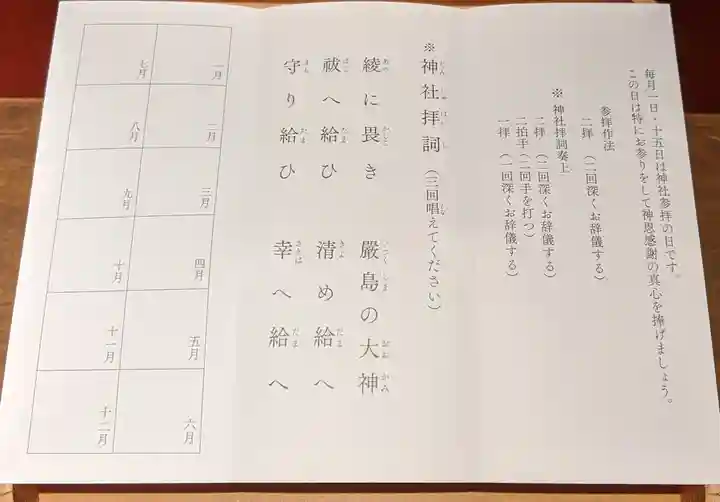 毎月一日・十五日は神社参拝の日です。
この日は特にお参りをして神恩感謝の真心を捧げましょう。
参拝作法
二拝 (二回深くお辞儀する)
※ 神社拝詞奏上
二拝 (二回深くお辞儀する)
二拍手(二回手を打つ)
一拝 (一回深くお辞儀する)
※神社拝詞(三回唱えてください)
綾に畏き 嚴島の大神
祓へ給ひ 清め給へ
守り給ひ 幸へ給へ
一月
二月
三月
四月
五月
六月
七月
八月
九月
十月
十一月
十二月